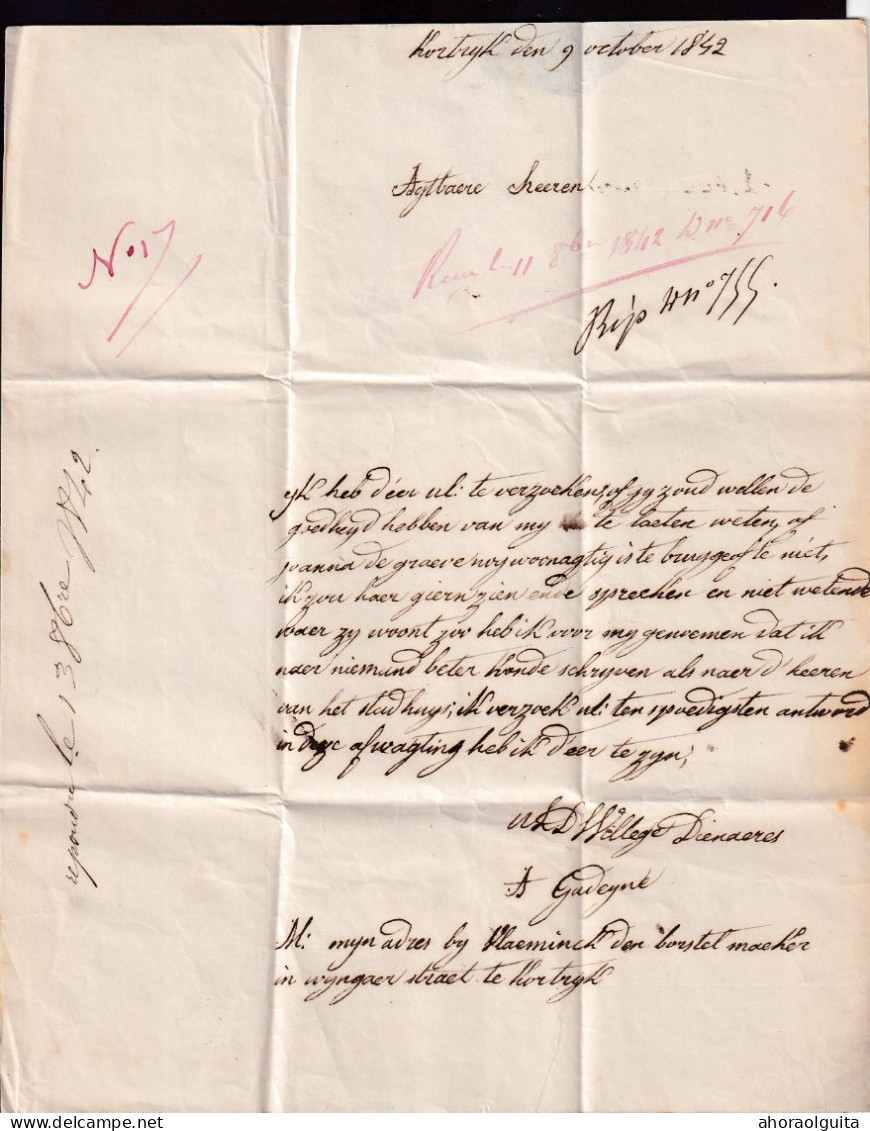 Kortryk den 9 october 1842
Agtbaere heeren
No 17
Recu le 11 8bre 1842 D no 716
Rép W no 755.
yk heb d'eer ul: te verzoeken, of gy zoud wellen de
goedheyd hebben van my te laeten weten, of
joanna de graeve nog woonagtig is te brugge of te niet,
ik zou haer giern zien ende sprechen en niet wetende
waer zy woont zoo heb ik voor my genomen dat ik
naer niemand beter konde schryven als naer d'heeren
van het stadhuys; ik verzoek ul: ten spoedigsten antword
in deze afwagting heb ik d'eer te zyn;
Dienaeres
A Gadeyne
M: myn adres by Vlaeminck den borstel maeker
in wyngaer straet te kortryk
repondu le 13 8bre 1842.
ahoraolguita